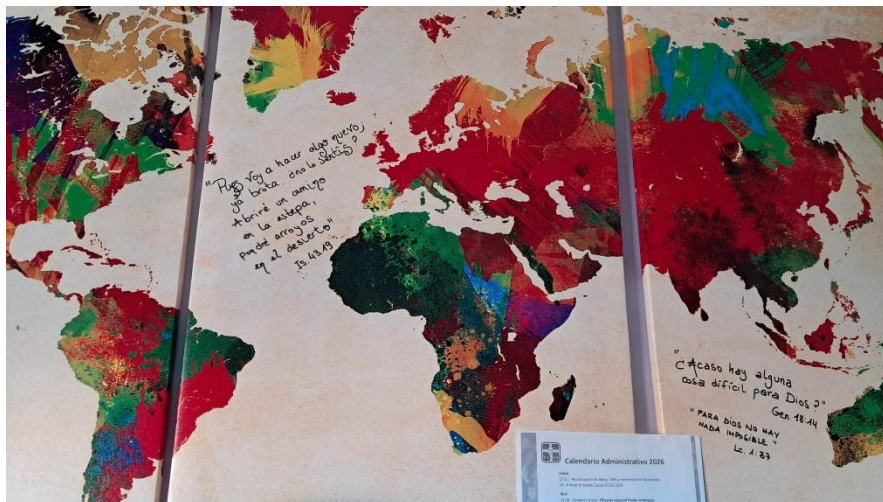 "Pues voy a hacer algo nuevo;
ya brota. ¿no lo sentís?
Abriré un camino
en la estepa,
Pondré arroyos
en el desierto"
Is. 43.19
"
¿Acaso hay alguna
cosa difícil para Dios?"
Gen. 18:14
"PARA DIOS NO HAY
NADA IMPOSIBLE."
Lc. 1:37
Calendario Administrativo 2026